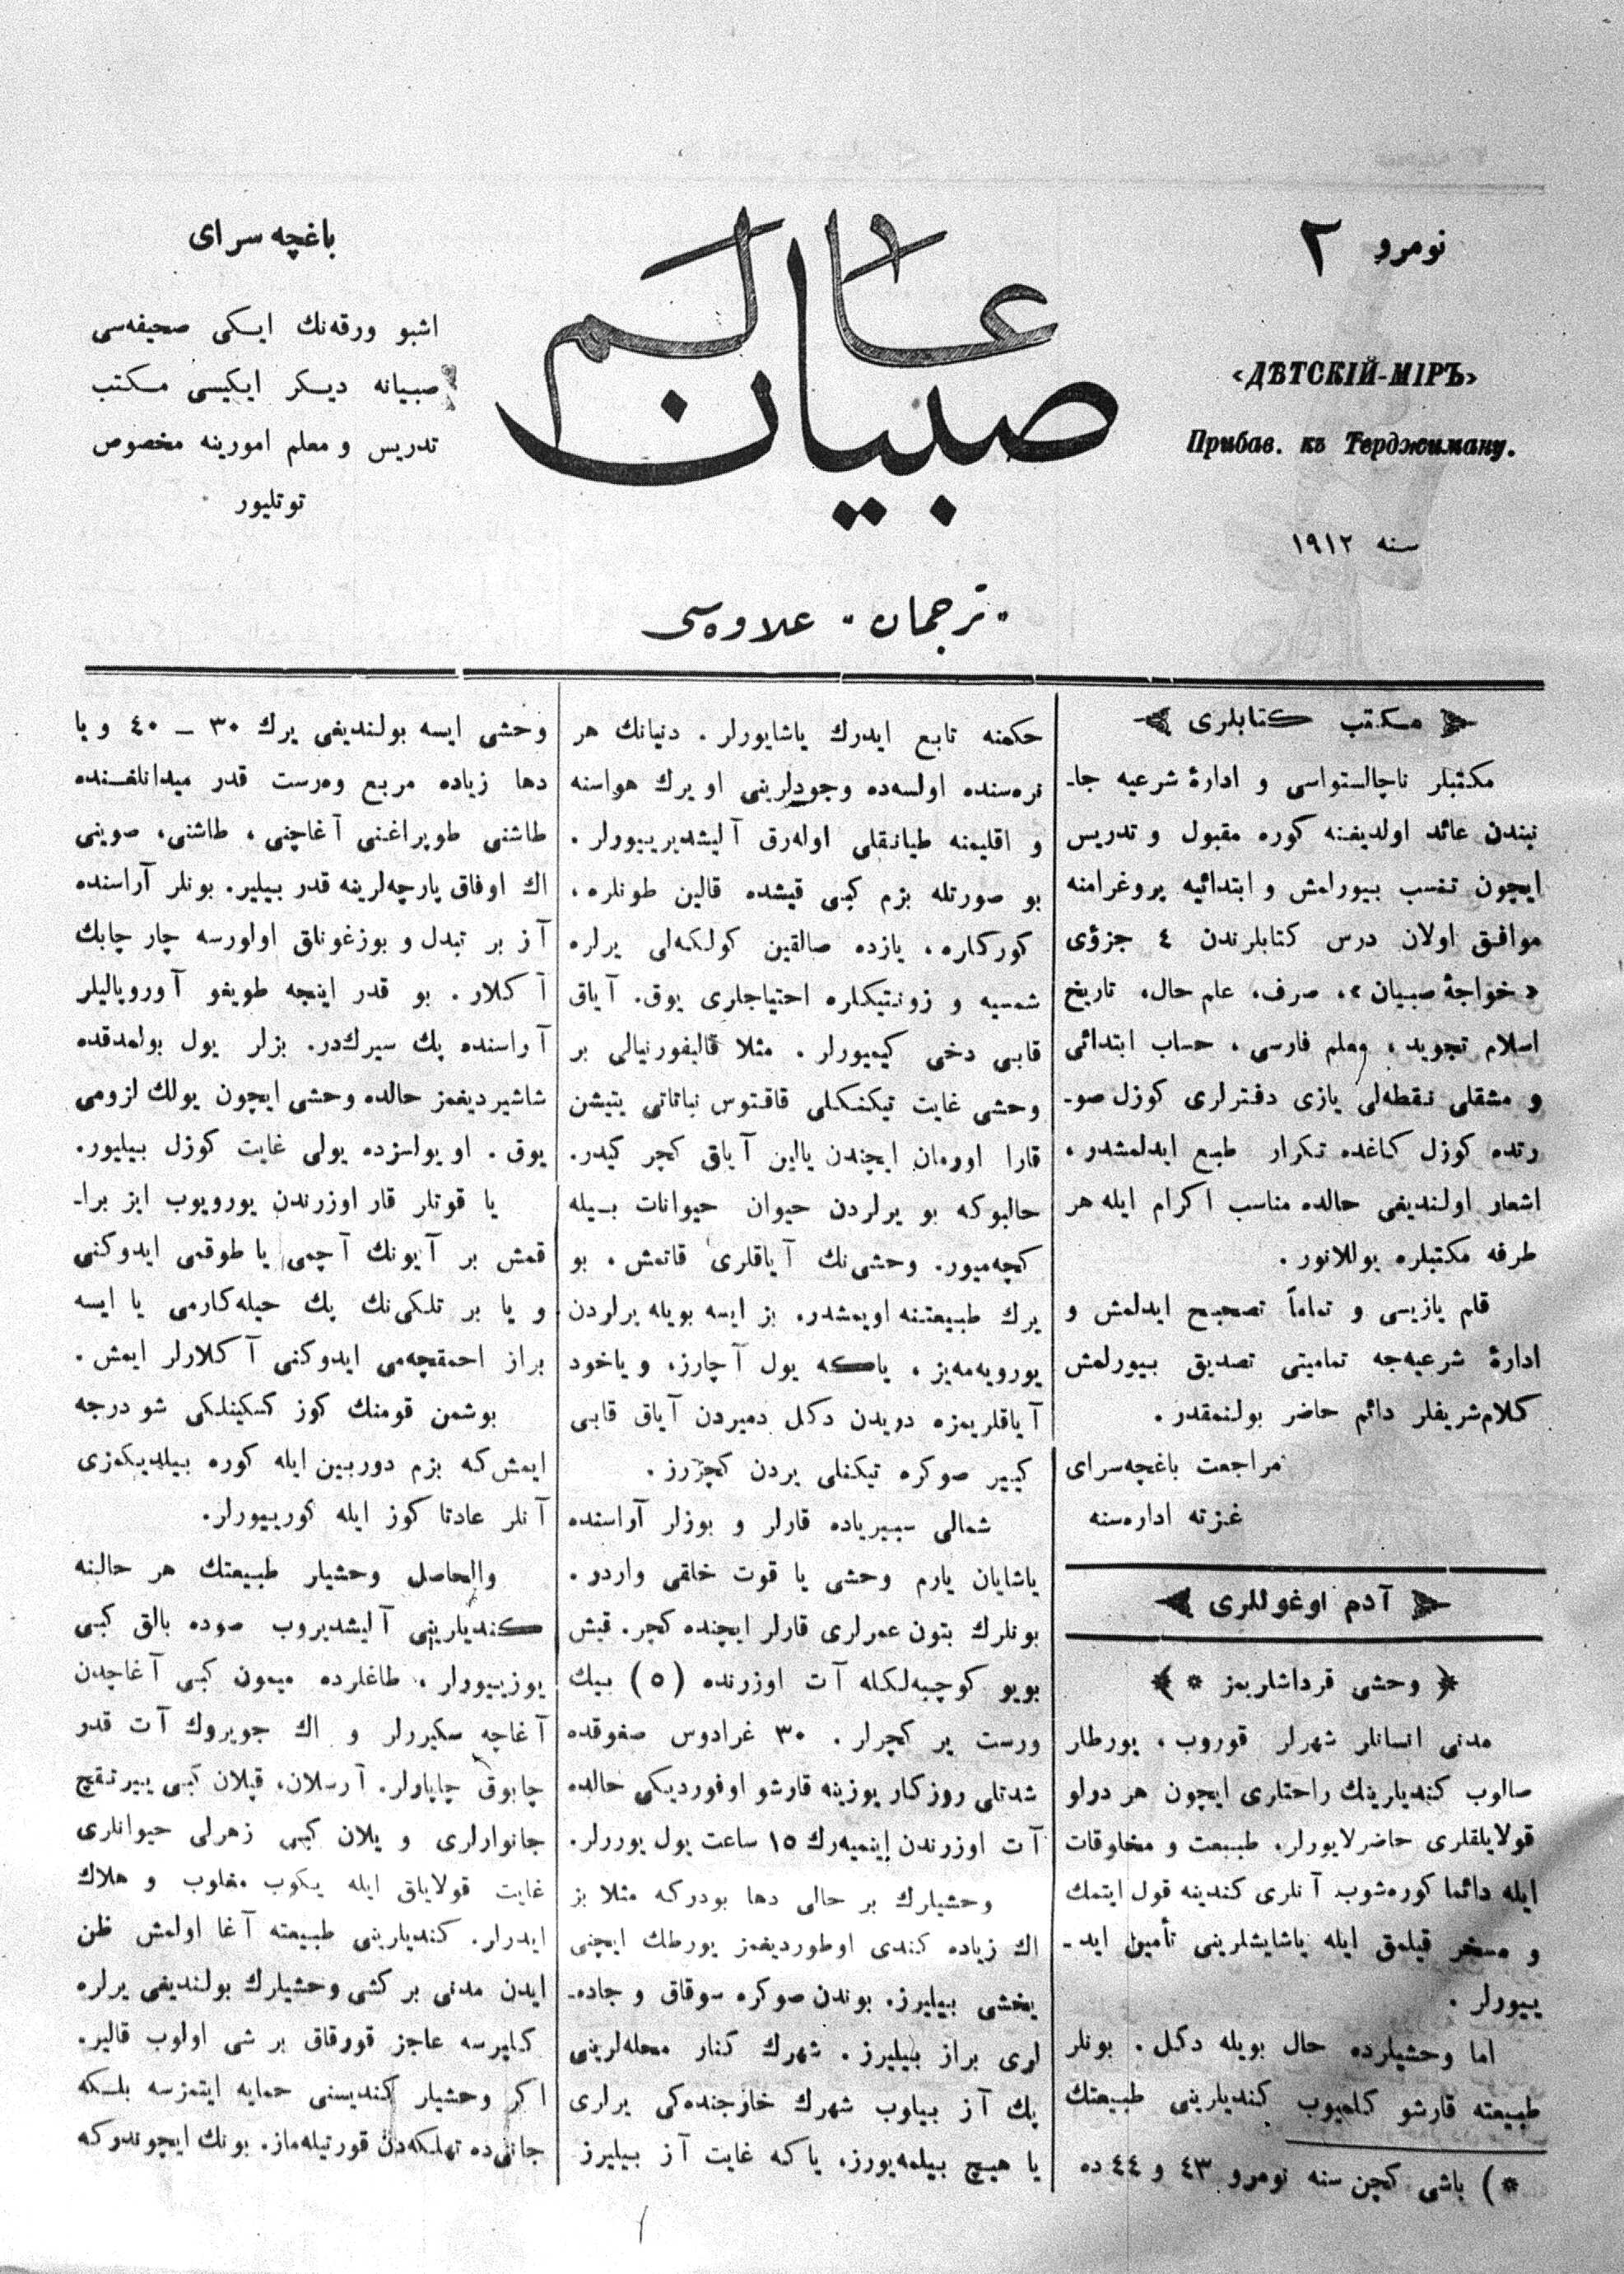 نومرو ٢
«ДѢТСКІЙ-МІРЪ»
Прибав. къ Терджиману.
سنه ١٩١٢
عالم
صبيان
"ترجمان" علاوه‌سی
باغچه سرای
اشبو ورقه‌نك ایكی صحیفه‌سی
صبیانه دیكر ایكیسی مكتب
تدریس و معلم امورینه مخصوص
توتلیور
مكتب كتابلری
مكتبلر ناچالستواسی و ادارهٔ شرعیه جا-
نبندن عائد اولدیغنه كوره مقبول و تدریس
ایچون تنسب بیورلمش و ابتدائیه پروغرامنه
موافق اولان درس كتابلرندن ٤ جزؤی
«خواجهٔ صبیان»، صرف، علم حال، تاریخ
اسلام تجوید، معلم فارسی، حساب ابتدائی
و مشقلی نقطه‌لی یازی دفترلری كوزل صو-
رتده كوزل كاغده تكرار طبع ایدلمشدر،
اشعار اولندیغی حالده مناسب اكرام ایله هر
طرفه مكتبلره یوللانور.
قلم یازیسی و تماماً تصحیح ایدلمش و
ادارهٔ شرعیه‌جه تمامیتی تصدیق بیورلمش
كلام‌شریفلر دائم حاضر بولنمقدر.
مراجعت باغچه‌سرای
غزته اداره‌سنه
آدم اوغوللری
وحشی قرداشلریمز *
مدنی انسانلر شهرلر قوروب، یورطلر
صالوب كندیلرینك راحتلری ایچون هر درلو
قولایلقلری حاضرلایورلر. طبیعت و مخلوقات
ایله دائما كوره‌شوب آنلری كندینه قول ایتمك
و مسخر قیلمق ایله یاشایشلرینی تأمین اید-
ییورلر.
اما وحشیلرده حال بویله دكل. بونلر
طبیعته قارشو كلمیوب كندیلرینی طبیعتك
*) باشی كچن سنه نومرو ٤٣ و ٤٤ ده
حكمنه تابع ایدرك یاشایورلر. دنیانك هر
نره‌سنده اولسه‌ده وجودلرینی او یرك هواسنه
و اقلیمنه طیانقلی اوله‌رق آلیشدیرییورلر.
بو صورتله بزم كبی قیشده قالین طونلره،
كوركلره، یازده صالقین كولكه‌لی یرلره
شمسیه و زونتیكلره احتیاجلری یوق. آیاق
قابی دخی كیمیورلر. مثلا قالیفورنیالی بر
وحشی غایت تیكنكلی قاقتوس نباتاتی یتیشن
قارا اورمان ایچندن یالین آیاق كچر كیدر.
حالبوكه بو یرلردن حیوان حیوانات بیله
كچه‌میور. وحشی‌نك آیاقلری قاتمش، بو
یرك طبیعتنه اویمشدر. بز ایسه بویله یرلردن
یورویه‌مه‌یز، یاكه یول آچارز، ویاخود
آیاقلریمزه دریدن دكل دمیردن آیاق قابی
كییر صوكره تیكنلی یردن كچرز.
شمالی سیبریاده قارلر و بوزلر آراسنده
یاشایان یارم وحشی یا قوت خلقی واردر.
بونلرك بتون عمرلری قارلر ایچنده كچر. قیش
بویو كوچبه‌لكله آت اوزرنده (٥) بیك
ورست یر كچرلر. ٣٠ غرادوس صغوقده
شدتلی روزكار یوزینه قارشو اوفوردیكی حالده
آت اوزرندن اینمیه‌رك ١٥ ساعت یول یوررلر.
وحشیلرك بر حالی دها بودركه مثلا بز
اك زیاده كندی اوطوردیغمز یورطك ایچنی
یخشی بیلیرز. بوندن صوكره سوقاق و جاده-
لری براز بیلیرز. شهرك كنار محله‌لرینی
پك آز بیلوب شهرك خارجنده‌كی یرلری
یا هیچ بیلمه‌یورز، یاكه غایت آز بیلیرز
وحشی ایسه بولندیغی یرك ٣٠ – ٤٠ و یا
دها زیاده مربع وه‌رست قدر میدانلغنده
طاشنی طوپراغنی آغاچنی، طاشنی، صوینی
اك اوفاق پارچه‌لرینه قدر بیلیر. بونلر آراسنده
آز بر تبدل و بوزغونلق اولورسه چار چابك
آكلار. بو قدر اینجه طویغو آوروپالیلر
آراسنده پك سیرك‌در. بزلر یول بولمدقده
شاشیردیغمز حالده وحشی ایچون یولك لزومی
یوق. او یولسزده یولی غایت كوزل بیلیور.
یا قوتلر قار اوزرندن یورویوب ایز برا-
قمش بر آیونك آچمی یا طوقمی ایدوكنی
و یا بر تلكی‌نك پك حیله‌كارمی یا ایسه
براز احمقچه‌می ایدوكنی آكلارلر ایمش.
بوشمن قومنك كوز كسكینلكی شو درجه
ایمش كه بزم دوربین ایله كوره بیلدیكمزی
آنلر عادتا كوز ایله كورییورلر.
والحاصل وحشیلر طبیعتك هر حالنه
كندیلرینی آلیشدیروب صوده بالق كبی
یوزییورلر، طاغلرده میمون كبی آغاچدن
آغاچه سكیررلر و اك جویروك آت قدر
چابوق چاپارلر. آرسلان، قپلان كبی ییرتقیچ
جانوارلری و یلان كبی زهرلی حیوانلری
غایت قولایلق ایله یكوب مغلوب و هلاك
ایدرلر. كندیلرینی طبیعته آغا اولمش ظن
ایدن مدنی بر كشی وحشیلرك بولندیغی یرلره
كلیرسه عاجز قورقاق بر شی اولوب قالیر.
اكر وحشیلر كندیسنی حمایه ایتمزسه بلكه
جانی‌ده تهلكه‌دن قورتیله‌ماز. بونك ایچوندوركه